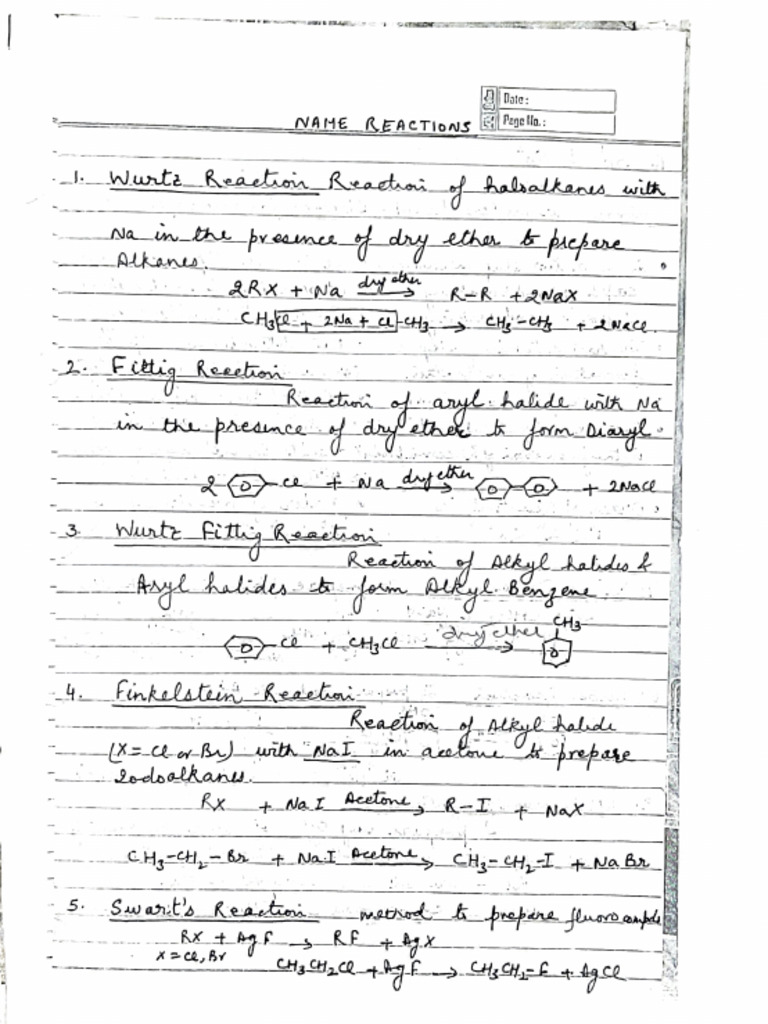 Date:
NAME REACTIONS Page No.:
1. Wurtz Reaction Reaction of haloalkanes with
Na in the presence of dry ether to prepare
Alkanes.
2RX + Na dry ether → R-R + 2NaX
CH3Cl + 2Na + Cl-CH3 → CH3-CH3 + 2NaCl
2. Fittig Reaction
Reaction of aryl halide with Na
in the presence of dry ether to form Diaryl.
2 -Cl + Na dry ether → + 2NaCl
3. Wurtz Fittig Reaction
Reaction of Alkyl halides &
Aryl halides to form Alkyl Benzene
CH3
-Cl + CH3Cl dry ether →
4. Finkelstein Reaction
Reaction of Alkyl halide
(X = Cl or Br) with NaI in acetone to prepare
Iodoalkanes.
RX + NaI Acetone → R-I + NaX
CH3-CH2-Br + NaI Acetone → CH3-CH2-I + NaBr
5. Swart's Reaction method to prepare fluoro
RX + AgF → RF + AgX
X = Cl, Br
CH3CH2Cl + AgF → CH3CH2-F + AgCl